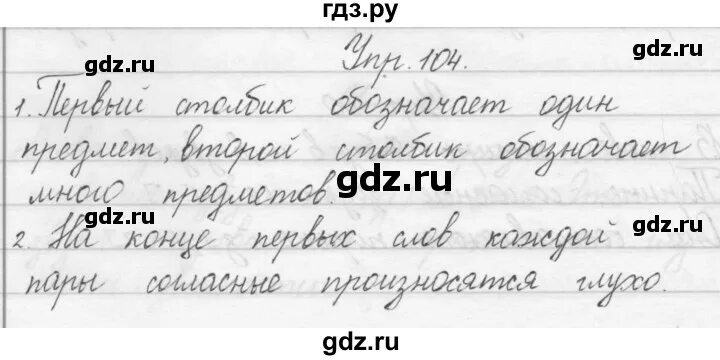 гдз.ру
gdz.ru gdz.ru
Упр. 104.
1. Первый столбик обозначает один
предмет, второй столбик обозначает
много предметов.
gdz.ru
2. На конце первых слов каждой
gdz.ru gdz.ru
пары согласные произносятся глухо.
gdz.ru